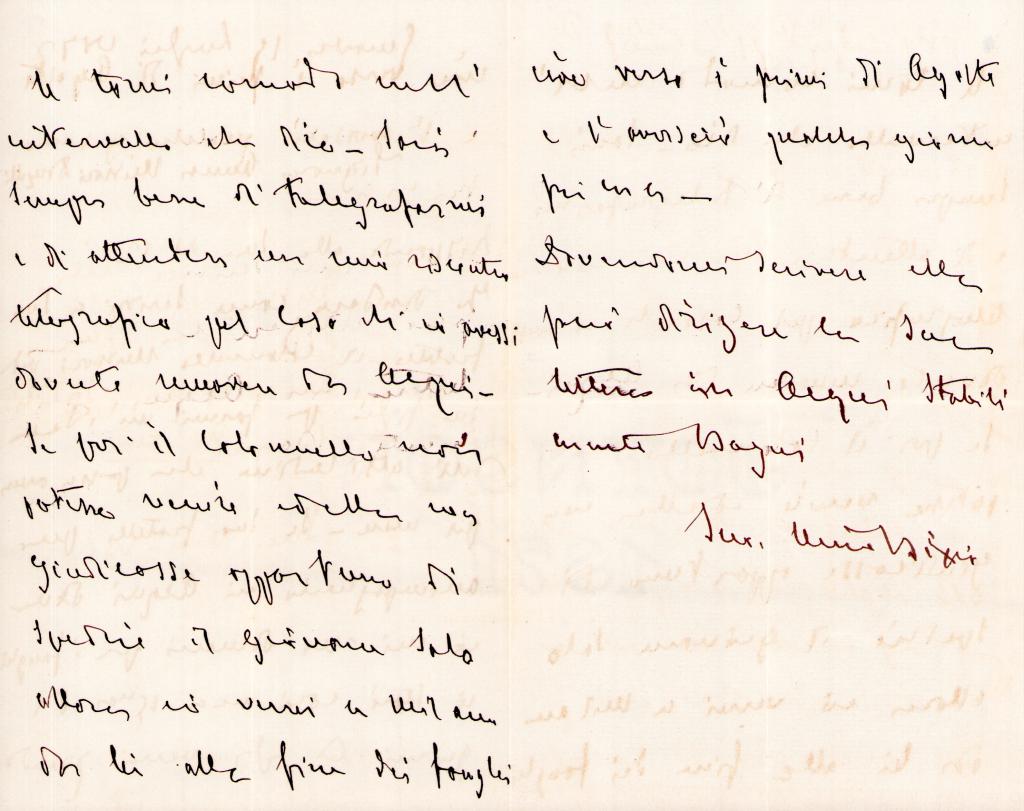 le torni comodo nell'
intervallo che dico - Sarà
sempre bene di telegrafarmi
e di attendere un mio riscontro
telegrafico pel caso ch'io avessi
dovuto muovere da Acqui -
Se poi il Colonnello non
potesse venire ed ella non
giudicasse opportuno di
spedire il giovane solo
allora io verrei a Milano
da lei alla fine dei fanghi
cioè verso i primi di Agosto
e l'avviserò qualche giorno
prima -
Dovendomi scrivere ella
può dirigere la sua
lettera in Acqui Stabili
mento Bagni
Suo. Nino Bixio